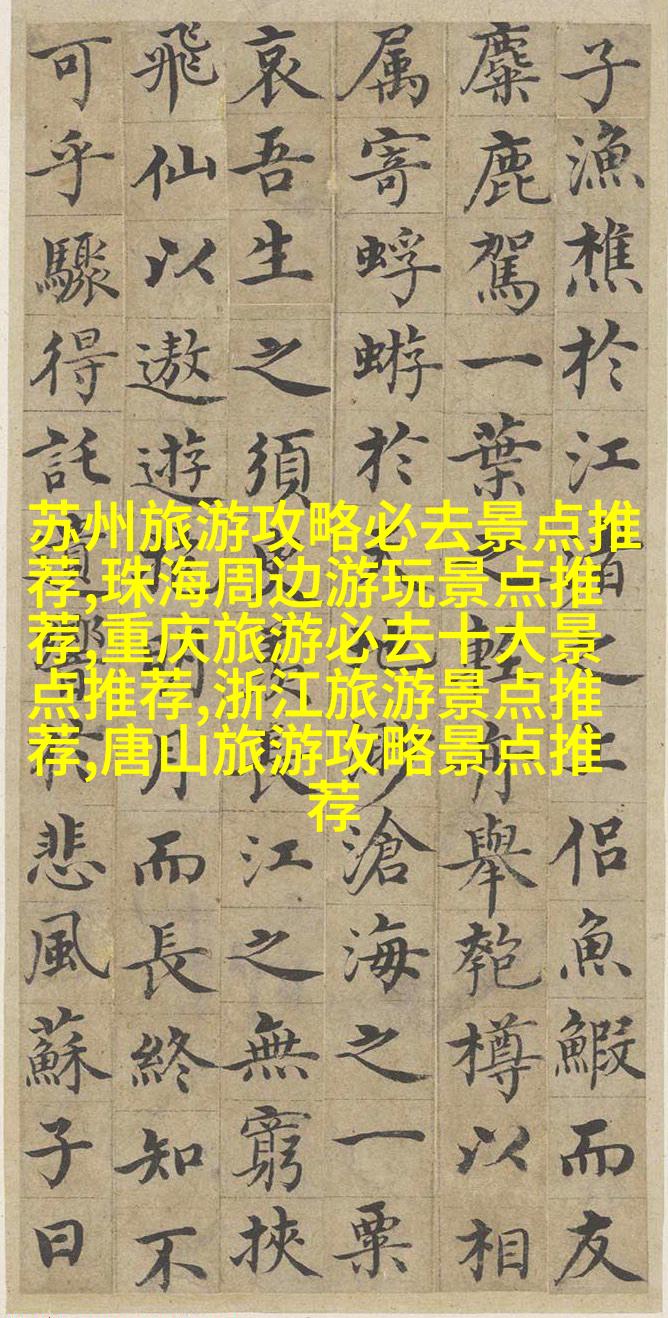 子漁樵於江渚之上侶魚鰕而友
麋鹿駕一葉之輕舟舉匏樽以相
属寄蜉蝣於天地眇滄海之一粟
哀吾生之須臾羨長江之無窮挾
飛仙以遨遊抱明月而長終知不
可乎驟得託遺響於悲風蘇子曰
苏州旅游攻略必去景点推
荐,珠海周边游玩景点推
荐,重庆旅游必去十大景
点推荐,浙江旅游景点推
荐,唐山旅游攻略景点推
荐